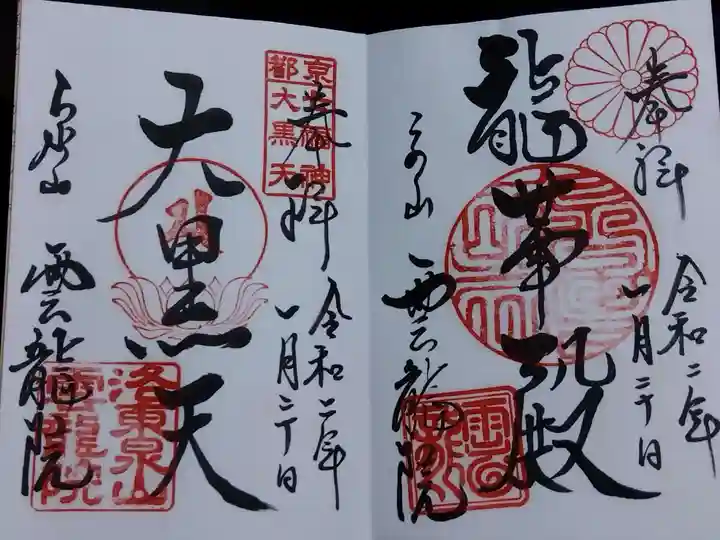 奉拝
令和二年
八月二十日
龍華殿
雲龍院
京都
七福神
大黒天
奉拝
令和二年
八月二十日
大黒天
雲龍院
洛東泉山
雲龍院